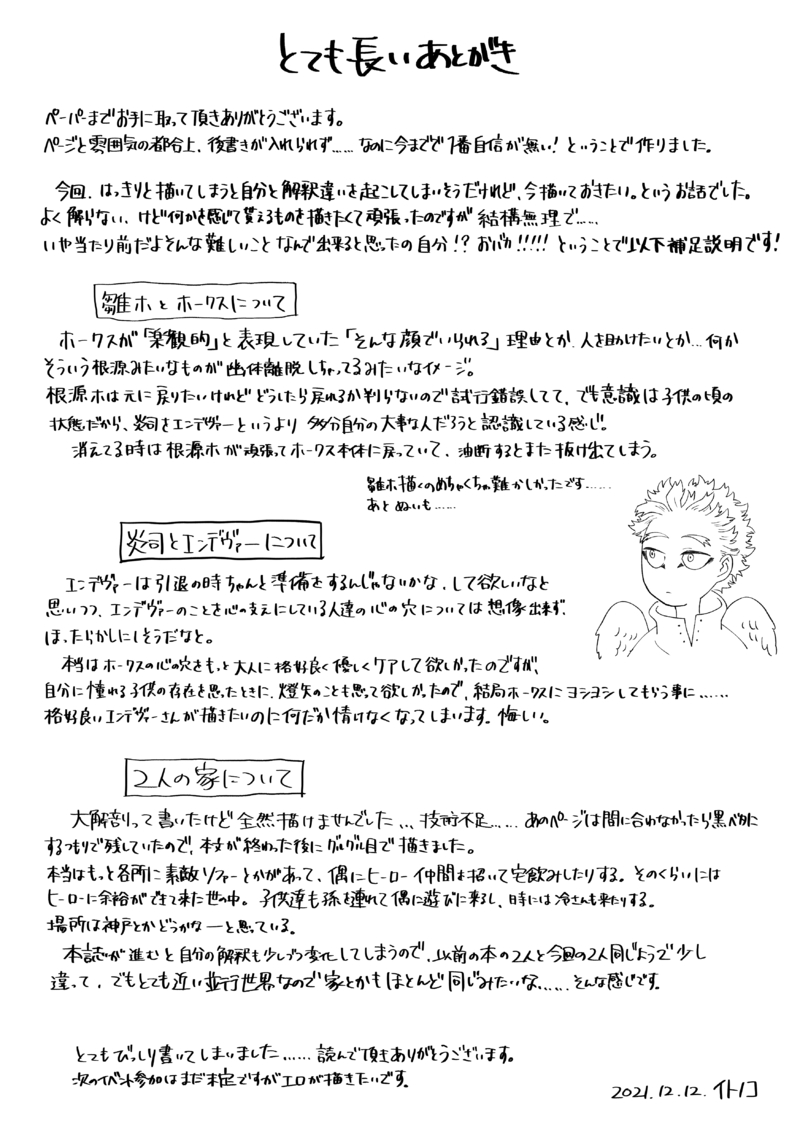 とても長いあとがき
ペーパーまでお手に取って頂きありがとうございます。
ページと雰囲気の都合上、後書きが入れられず……なのに今までで1番自信が無い!ということで作りました。
今回、はっきりと描いてしまうと自分と解釈違いを起こしてしまいそうだけれど、今描いておきたい。というお話でした。
よく解らない、けど何かを感じて貰えるものを描きたくて頑張ったのですが結構無理で……
いや当たり前だよそんな難しいことなんで出来ると思ったの自分!?おバカ!!!!!ということで以下補足説明です!
雛ホとホークスについて
ホークスが「楽観的」と表現していた「そんな顔でいられる」理由とか、人を助けたいとか…何か
そういう根源みたいなものが幽体離脱しちゃってるみたいなイメージ。
根源ホは元に戻りたいけれどどうしたら戻れるか判らないので試行錯誤してて、でも意識は子供の頃の
状態だから、炎司さエンデヴァーというより多分自分の大事な人だろうと認識している感じ。
消えてる時は根源ホが頑張ってホークス本体に戻っていて、油断するとまた抜け出てしまう。
雛ホ描くのめちゃくちゃ難かしかったです……
あとぬいも……
炎司とエンデヴァーについて
エンデヴァーは引退の時ちゃんと準備をするんじゃないかな、して欲しいなと
思いつつ、エンデヴァーのことを心の支えにしている人達の心の穴については想像出来ず、
ほったらかしにしそうだなと。
本当はホークスの心の穴をもっと大人に格好良く優しくケアして欲しかったのですが、
自分に憧れる子供の存在を思ったときに、燈矢のことも思って欲しかったので、結局ホークスにヨシヨシしてもらう事に……
格好良いエンデヴァーさんが描きたいのに何だか情けなくなってしまいます。悔しい。
2人の家について
大解剖って書いたけど全然描けませんでした…技術不足……あのページは間に合わなかったら黒ベタに
するつもりで残していたので、本文が終わった後にグルグル目で描きました。
本当はもっと各所に素敵ソファーとかがあって、偶にヒーロー仲間を招いて宅飲みしたりする。そのくらいには
ヒーローに余裕ができて来た世の中。子供達も孫を連れて偶に遊びに来るし、時には冷さんも来たりする。
場所は神戸とかどうかなーと思っている。
本誌が進むと自分の解釈も少しづつ変化してしまうので、以前の本の2人と今回の2人同じようで少し
違って、でもとても近い並行世界なので家とかもほとんど同じみたいな……そんな感じです。
とてもびっしり書いてしまいました……読んで頂きありがとうございます。
次のイベント参加はまだ未定ですがエロが描きたいです。
2021.12.12.イトノコ